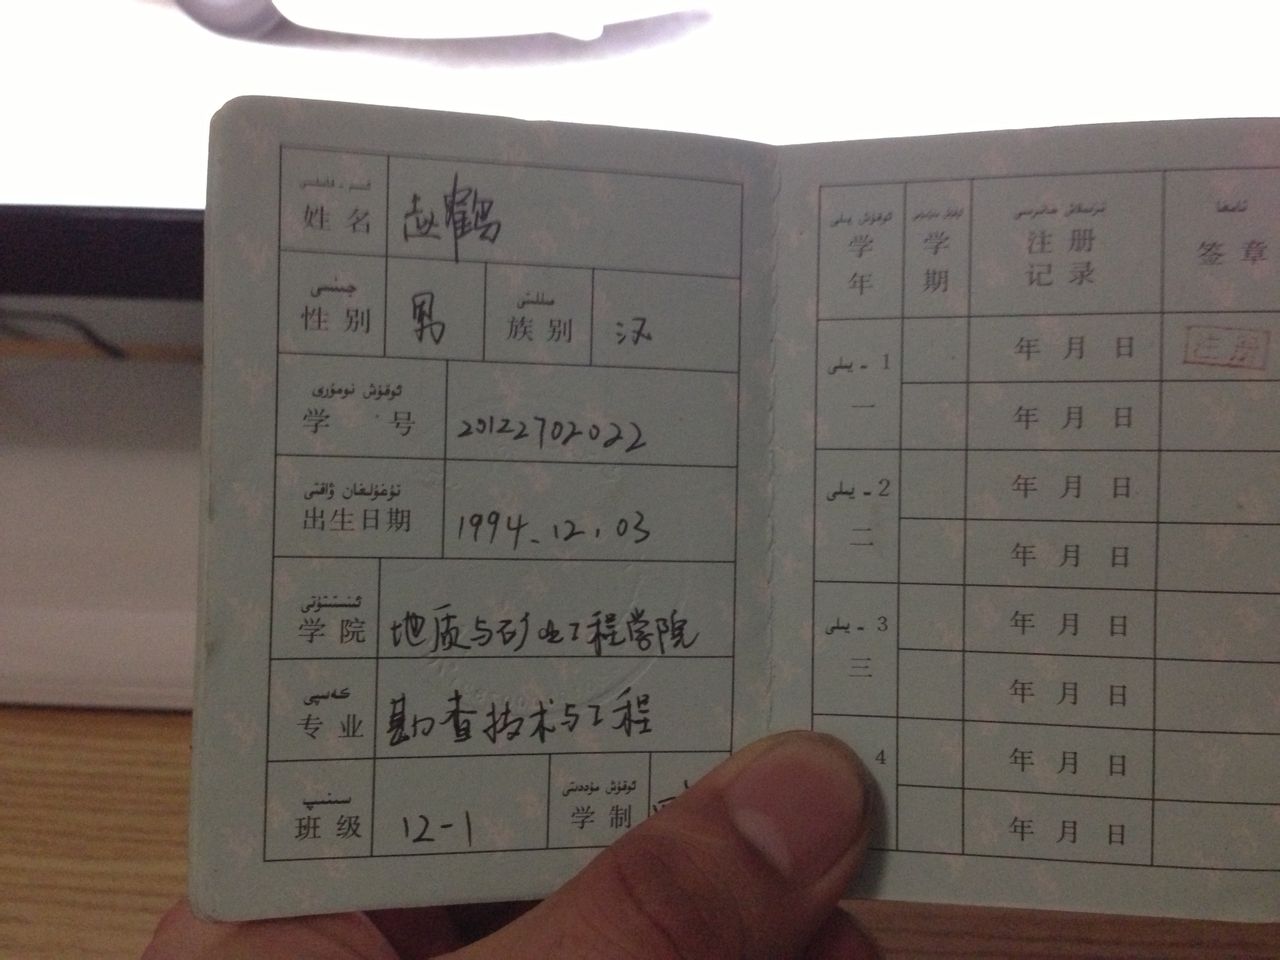 ئىسىم - فامىلىسى
姓名 赵鹤
جىنسى مىللىتى
性别 男 族别 汉
ئوقۇش نومۇرى
学号 20122702022
تۇغۇلغان ۋاقتى
出生日期 1994.12.03
ئىنستىتۇتى
学院 地质与矿业工程学院
كەسپى
专业 勘查技术与工程
سىنىپ ئوقۇش مۇددىتى
班级 12-1 学制
ئوقۇش يىلى تامغا
学年 学期 注册记录 签章
1 - يىلى
一
年 月 日 注册
年 月 日
2 - يىلى
二
年 月 日
年 月 日
3 - يىلى
三
年 月 日
年 月 日
4
年 月 日
年 月 日